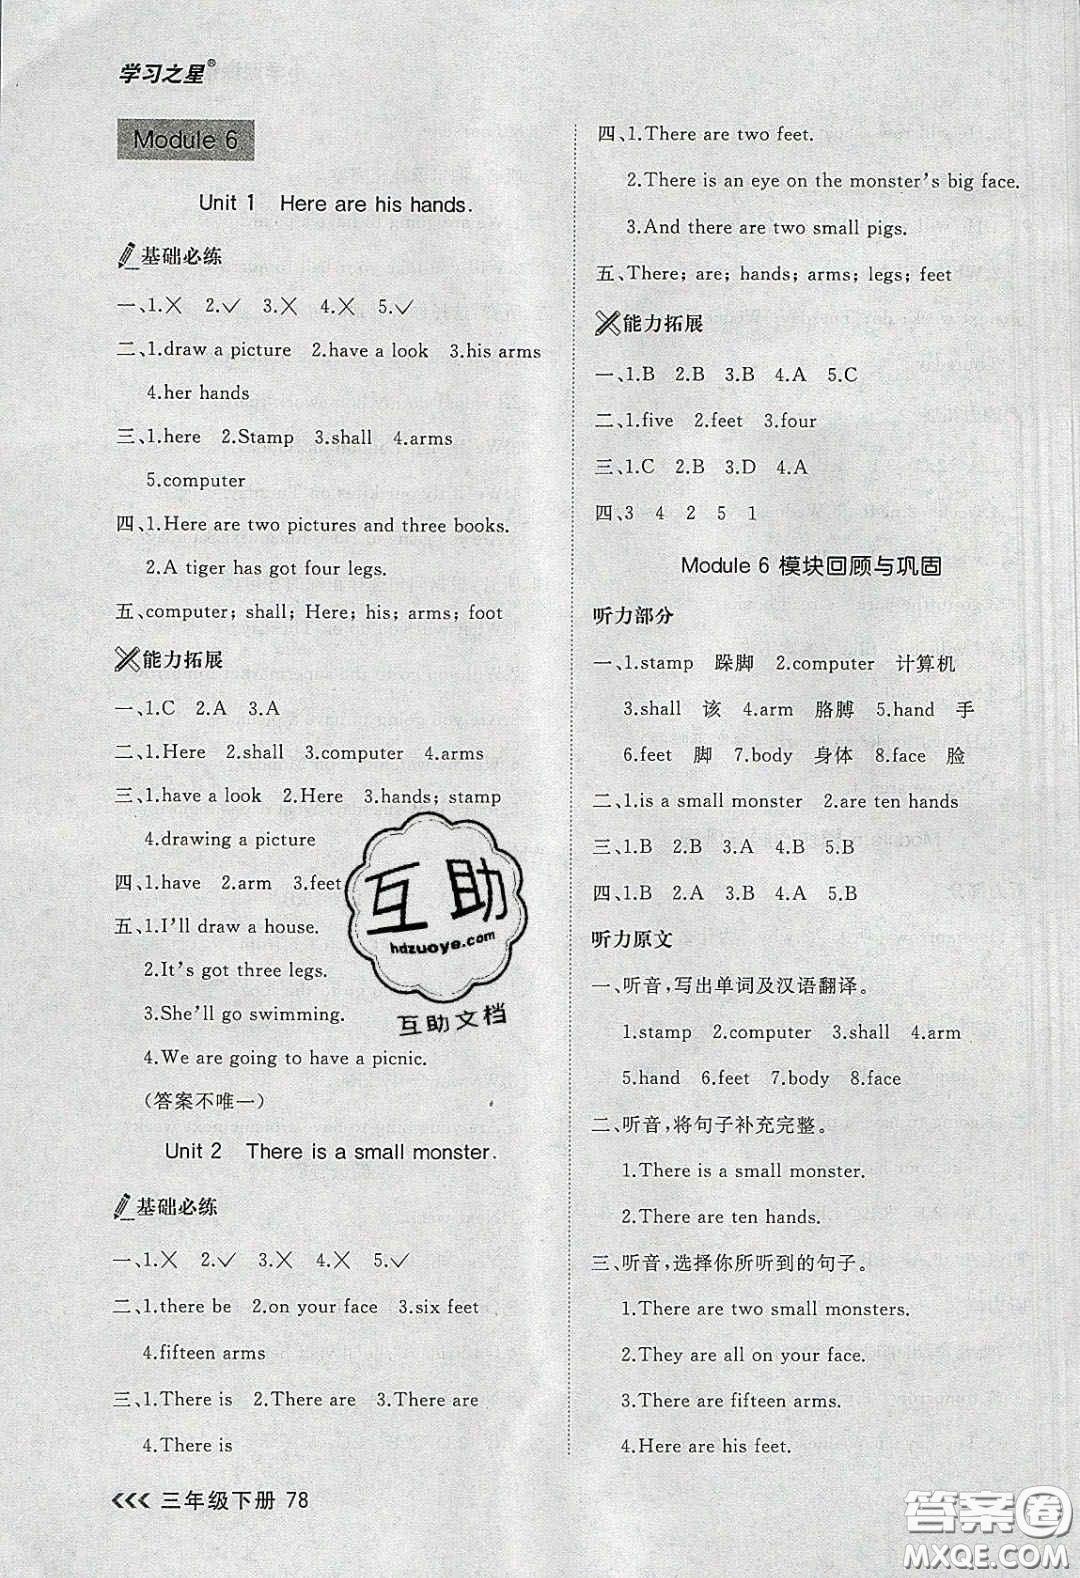 学习之星®
Module 6
Unit 1 Here are his hands.
基础必练
一、1.✗ 2.✓ 3.✗ 4.✗ 5.✓
二、1.draw a picture 2.have a look 3.his arms
4.her hands
三、1.here 2.Stamp 3.shall 4.arms
5.computer
四、1.Here are two pictures and three books.
2.A tiger has got four legs.
五、computer; shall; Here; his; arms; foot
能力拓展
一、1.C 2.A 3.A
二、1.Here 2.shall 3.computer 4.arms
三、1.have a look 2.Here 3.hands; stamp
4.drawing a picture
四、1.have 2.arm 3.feet
五、1.I'll draw a house.
2.It's got three legs.
3.She'll go swimming.
4.We are going to have a picnic.
(答案不唯一)
Unit 2 There is a small monster.
基础必练
一、1.✗ 2.✓ 3.✗ 4.✗ 5.✓
二、1.there be 2.on your face 3.six feet
4.fifteen arms
三、1.There is 2.There are 3.There are
4.There is
四、1.There are two feet.
2.There is an eye on the monster's big face.
3.And there are two small pigs.
五、There; are; hands; arms; legs; feet
能力拓展
一、1.B 2.B 3.B 4.A 5.C
二、1.five 2.feet 3.four
三、1.C 2.B 3.D 4.A
四、3 4 2 5 1
Module 6 模块回顾与巩固
听力部分
一、1.stamp 跺脚 2.computer 计算机
3.shall 该 4.arm 胳膊 5.hand 手
6.feet 脚 7.body 身体 8.face 脸
二、1.is a small monster 2.are ten hands
三、1.B 2.B 3.A 4.B 5.B
四、1.B 2.A 3.A 4.A 5.B
听力原文
一、听音,写出单词及汉语翻译。
1.stamp 2.computer 3.shall 4.arm
5.hand 6.feet 7.body 8.face
二、听音,将句子补充完整。
1.There is a small monster.
2.There are ten hands.
三、听音,选择你所听到的句子。
1.There are two small monsters.
2.They are all on your face.
3.There are fifteen arms.
4.Here are his feet.
三年级下册 78
互助
hdzuoye.com
互助文档
答案圈
MXQE.COM